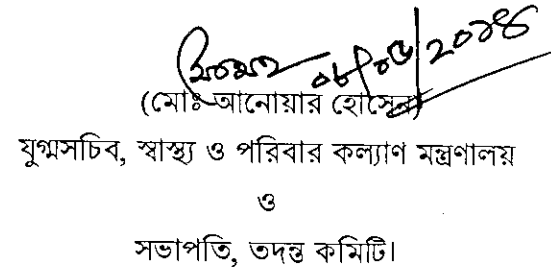 (মোঃ আনোয়ার হোসেন)
যুগ্মসচিব, স্বাস্থ্য ও পরিবার কল্যাণ মন্ত্রণালয়
ও
সভাপতি, তদন্ত কমিটি।